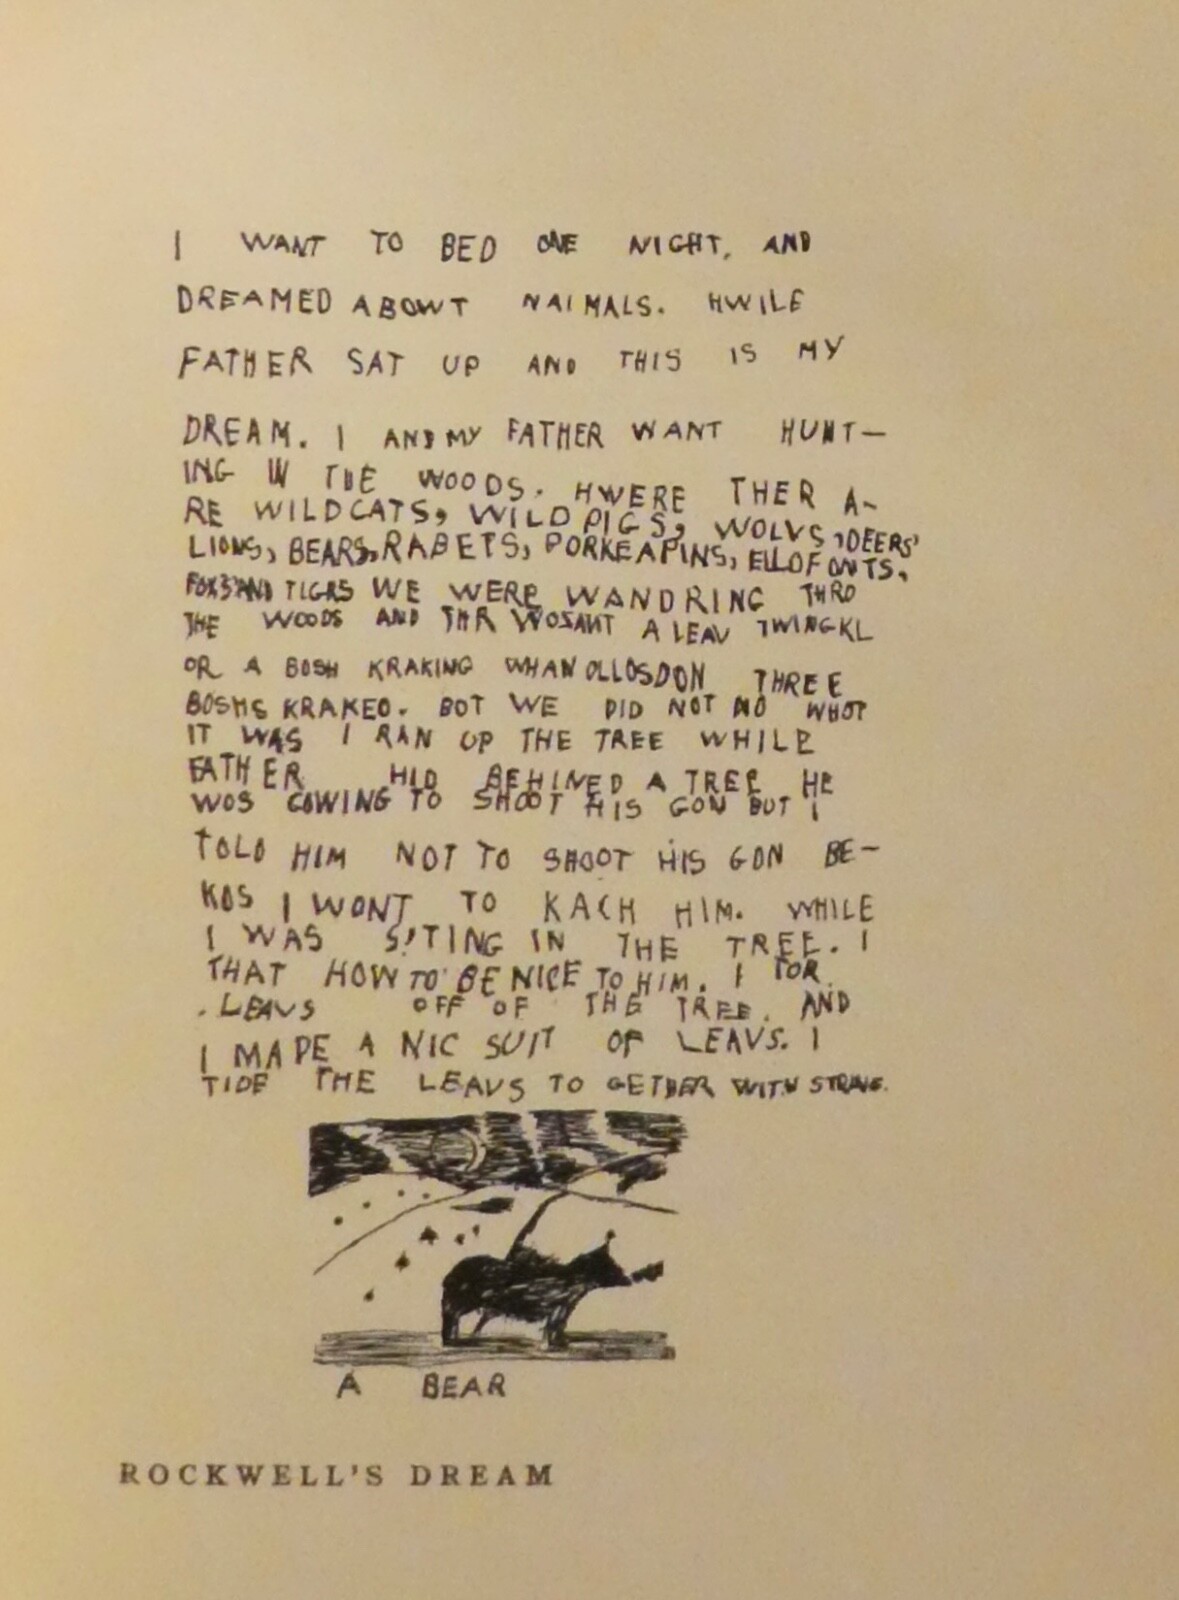 I WANT TO BED ONE NIGHT, AND
DREAMED ABOWT NAIMALS. HWILE
FATHER SAT UP AND THIS IS MY
DREAM. I AND MY FATHER WANT HUNT-
ING IN THE WOODS. HWERE THER A-
RE WILDCATS, WILD PIGS, WOLVS, DEERS,
LIONS, BEARS, RABETS, PORKEAPINS, ELLOFONTS,
FOXS AND TIGRS WE WERE WANDRING THRO
THE WOODS AND THR WOSANT A LEAV TWINGKL
OR A BOSH KRAKING WHAN OLLOSDON THREE
BOSHS KRAKED. BOT WE DID NOT NO WHOT
IT WAS I RAN UP THE TREE WHILE
FATHER HID BEHINED A TREE HE
WOS GOWING TO SHOOT HIS GON BUT I
TOLD HIM NOT TO SHOOT HIS GON BE-
KOS I WONT TO KACH HIM. WHILE
I WAS SITING IN THE TREE. I
THAT HOW TO BE NICE TO HIM. I TOR
LEAVS OFF OF THE TREE. AND
I MADE A NIC SUIT OF LEAVS. I
TIDE THE LEAVS TO GETHER WITH STRING.
A BEAR
ROCKWELL'S DREAM